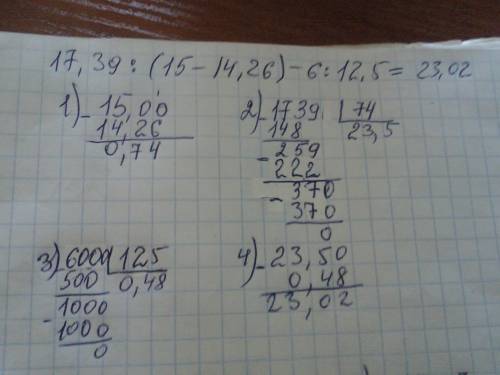 17,39 : (15 - 14,26) - 6 : 12,5 = 23,02
1) - 15,00
14,26
0,74
2) - 1739 | 74
148 23,5
- 259
222
- 370
370
0
3) 6000 | 125
500 0,48
- 1000
1000
0
4) - 23,50
0,48
23,02